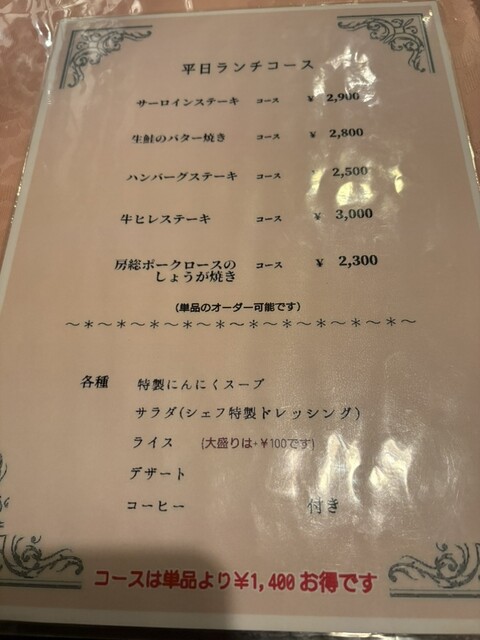 平日ランチコース
サーロインステーキ コース ¥ 2,900
生鮭のバター焼き コース ¥ 2,800
ハンバーグステーキ コース ¥ 2,500
牛ヒレステーキ コース ¥ 3,000
房総ポークロースの
しょうが焼き コース ¥ 2,300
(単品のオーダー可能です)
～＊～＊～＊～＊～＊～＊～＊～＊～＊～＊～
各種 特製にんにくスープ
サラダ(シェフ特製ドレッシング)
ライス (大盛りは+¥100です)
デザート
コーヒー 付き
コースは単品より¥1,400お得です